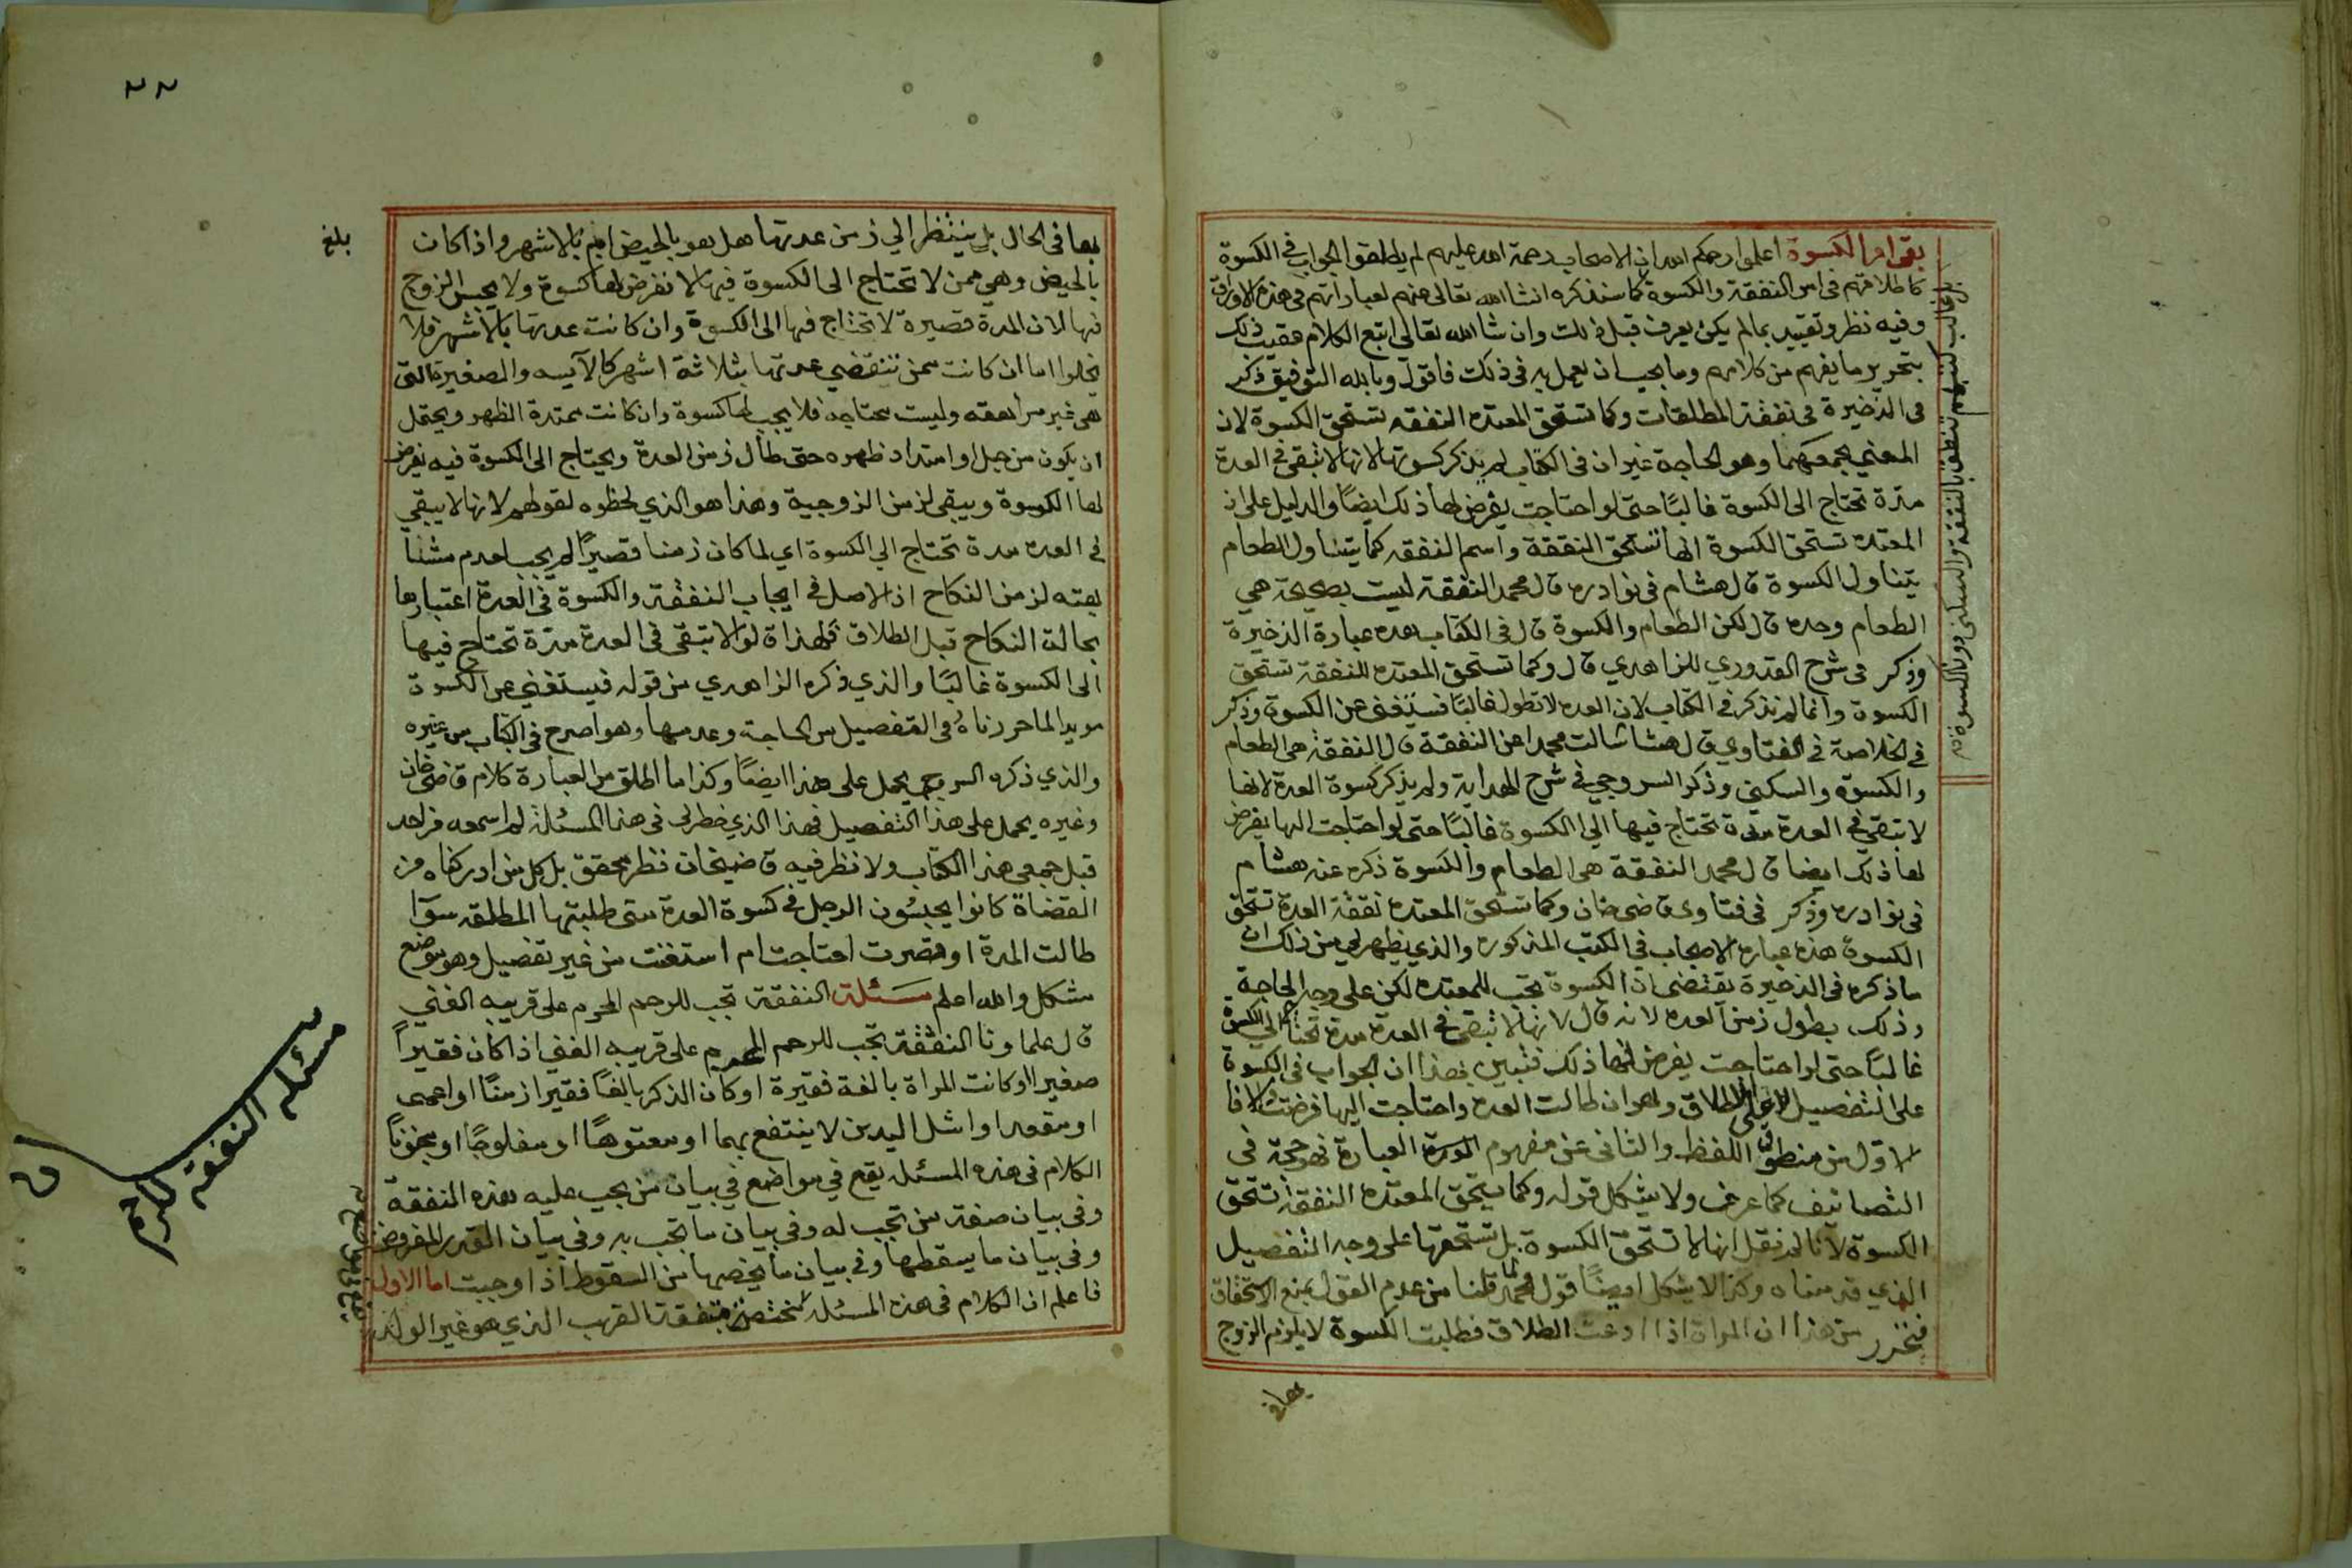 بقي امر الكسوة اعلموا رحمكم الله ان الاصحاب رحمة الله عليهم لم يطلقوا الجواب في الكسوة
كاطلاقهم في امر النفقة والكسوة كما سنذكره انشا الله تعالى عنهم لعباراتهم في هذه الاوراق
وفيه نظر وتقييد بما لم يكن يعرف قبل ذلك وان شا الله تعالى اتبع الكلام عقيب ذلك
بتحرير ما يفهم من كلامهم وما يجب ان يعمل به في ذلك فاقول وبالله التوفيق ذكر
في الذخيرة في نفقة المطلقات وكما تستحق المعتده النفقه تستحق الكسوة لان
المعني يجمعهما وهو الحاجة غير ان في الكتاب لم يذكر كسوتها لانها لا تبقى في العدة
مدة تحتاج الى الكسوة غالبًا حتى لو احتاجت يفرض لها ذلك ايضًا والدليل على ان
المعتده تستحق الكسوة انها تستحق النفقة واسم النفقه كما يتناول الطعام
يتناول الكسوة قال هشام في نوادره قال محمد النفقة ليست بصحيحة هي
الطعام وحده قال لكن الطعام والكسوة قال في الكتاب هده عبارة الذخيرة
وذكر في شرح القدوري للزاهدي قال وكما تستحق المعتده للنفقة تستحق
الكسوة وانما لم تذكر في الكتاب لان العده لا تطول غالبًا فتستغنى عن الكسوة وذكر
في الخلاصة في الفتاوي قال هشا سالت محمدا عن النفقة قال النفقة هي الطعام
والكسوة والسكنى وذكر السروجي في شرح الهداية ولم يذكر كسوة العدة لانها
لا تبقي في العدة مدة تحتاج فيها الي الكسوة غالبًا حتى لو احتاجت اليها يفرض
لها ذلك ايضا قال محمد النفقة هي الطعام والكسوة ذكره عنه هشام
في نوادره وذكر في فتاوى قاضي خان وكما تستحق المعتده نفقة العدة تستحق
الكسوة هذه عبارة الاصحاب في الكتب المذكوره والذي يظهر لي من ذلك ان
ما ذكره في الذخيرة يقتضي ان الكسوة تجب للمعتده لكن على وجه الحاجة
وذلك بطول زمن العده لانه قال لانها لا تبقى في العدة مدة تحتاج الي الكسوة
غالبًا حتى لو احتاجت يفرض لها ذلك فتبين بهذا ان الجواب في الكسوة
على التفصيل لا على الاطلاق وهو ان طالت العده واحتاجت اليها فرضت لها
الاول من منطوق اللفظ والثاني عن مفهوم العبارة فهو حجة في
التصانيف كما عرف ولا يشكل قوله وكما يستحق المعتده النفقة تستحق
الكسوة لانا لم نقل انها لا تستحق الكسوة بل تستحقها على وجه التفصيل
الذي قدمناه وكذا لا يشكل ايضًا قول محمد لما قلنا من عدم القول بمنع الاستحقاق
فتحرر من هذا ان المراة اذا ادعت الطلاق فطلبت الكسوة لا يلزم الزوج
بها في
لها في الحال بل ينتظر الي زمن عدتها هل هو بالحيض ام بالاشهر واذا كان
بالحيض وهي ممن لا تحتاج الى الكسوة فيها لا نفرض لها كسوة ولا يحبس الزوج
فيها لان المدة قصيرة لا تحتاج فيها الى الكسوة وان كانت عدتها بالاشهر فلا
يخلوا اما ان كانت ممن تنقضي عدتها بثلاثة اشهر كالآيسه والصغيرة التى
هي غير مراهقه وليست محتاجه فلا يجب لها كسوة وان كانت ممتدة الطهر ويحتمل
ان يكون من حبل او امتداد طهره حتى طال زمن العدة ويحتاج الى الكسوة فيه نفرض
لها الكسوة ويبقى لزمن الزوجية وهذا هو الذي لحظوه لقولهم لانها لا يبقي
في العده مدة تحتاج الي الكسوة اي لما كان زمنا قصيرًا لم يجب لعدم مشا
بهته لزمن النكاح اذ الاصل في ايجاب النفقة والكسوة في العدة اعتبارها
بحالة النكاح قبل الطلاق فلهذا قالوا لا تبقى في العدة مدة تحتاج فيها
الى الكسوة غالبًا والذي ذكره الزاهدي من قوله فيستغني عن الكسوة
مويد لما حررناهُ في التفصيل من الحاجة وعدمها وهو اصرح في الكتاب من غيره
والذي ذكره السروجي يحمل على هذا ايضًا وكذا ما اطلق من العبارة كلام قاضي خان
وغيره يحمل على هذا التفصيل فهذا الذي خطر لي في هذا المسئلة لم اسمعه من احد
قبل جمعي هذا الكتاب ولا نظر فيه قاضيخان نظر محقق بل كل من ادركناه من
القضاة كانوا يحبسُون الرجل في كسوة العدة متى طلبتها المطلقه سوَا
طالت المدة او قصرت احتاجت ام استغنت من غير تفصيل وهو موضع
مشكل والله اعلم مسَئلة النفقة تجب للرحم المحرم على قريبه الغني
قال علماونا النفقة تجب للرحم المحرم على قريبه الغني اذا كان فقيراً
صغيرا او كانت المراة بالغة فقيرة او كان الذكر بالغًا فقيرا زمنًا او اعمى
او مقعدا او اشل اليدين لا ينتفع بهما او معتوهًا او مفلوجًا او مجنونًا
الكلام في هذه المسئله يقع في مواضع في بيان من يجب عليه هذه النفقة
وفي بيان صفة من تجب له وفي بيان ما تجب به وفي بيان القدر المفروض
وفي بيان ما يسقطها وفي بيان ما يخصها من السقوط اذا وجبت اما الاول
فاعلم ان الكلام في هذه المسئله مختص بنفقة القريب الذي هو غير الولد
بلغ
مسئلة النفقة للرحم
٢٢